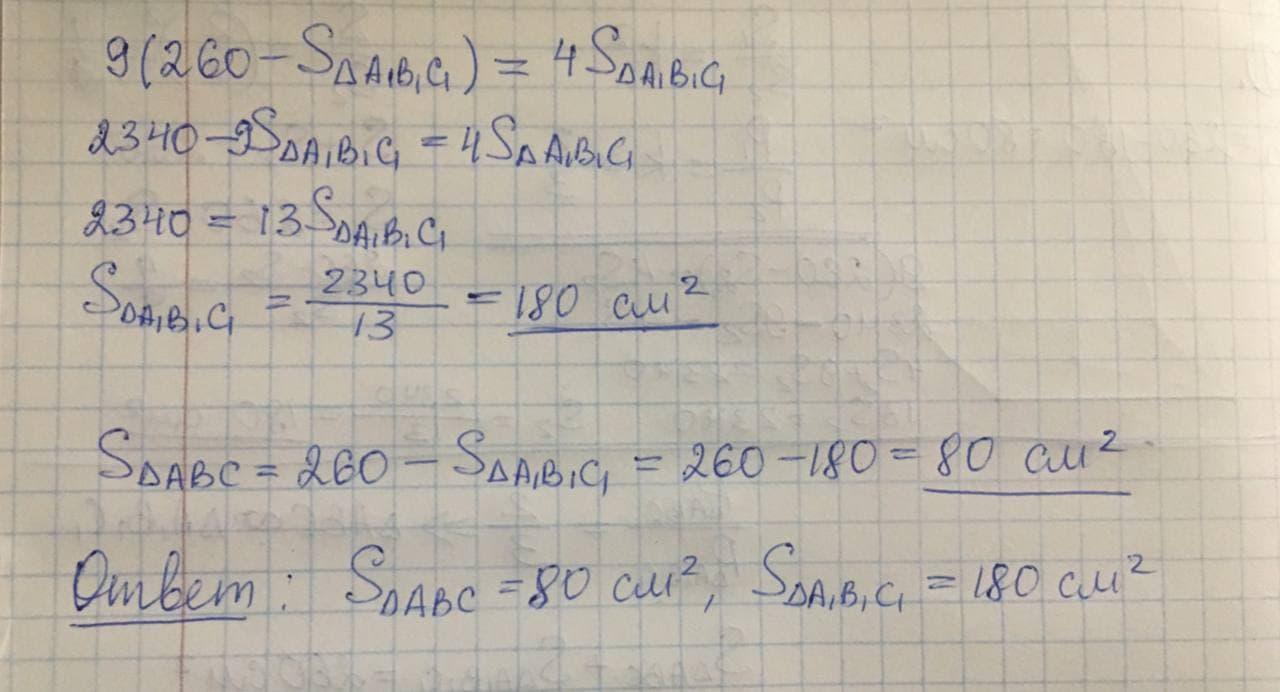 9(260 − S△A₁B₁C₁) = 4S△A₁B₁C₁
2340 − 9S△A₁B₁C₁ = 4S△A₁B₁C₁
2340 = 13S△A₁B₁C₁
S△A₁B₁C₁ = 2340/13 = 180 см²
S△ABC = 260 − S△A₁B₁C₁ = 260 − 180 = 80 см²
Ответ: S△ABC = 80 см², S△A₁B₁C₁ = 180 см²